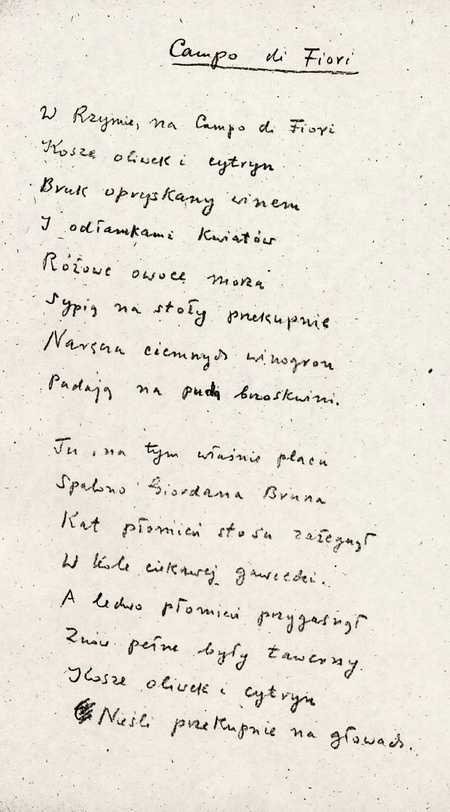 Campo di Fiori
W Rzymie, na Campo di Fiori
Kosze oliwek i cytryn
Bruk opryskany winem
I odłamkami kwiatów
Różowe owoce morza
Sypią na stoły przekupnie
Naręcza ciemnych winogron
Padają na puch brzoskwini.
Tu, na tym właśnie placu
Spalono Giordana Bruna
Kat płomień stosu zażegnął
W kole ciekawej gawiedzi.
A ledwo płomień przygasnął
Znów pełne były tawerny
Kosze oliwek i cytryn
Nieśli przekupnie na głowach.